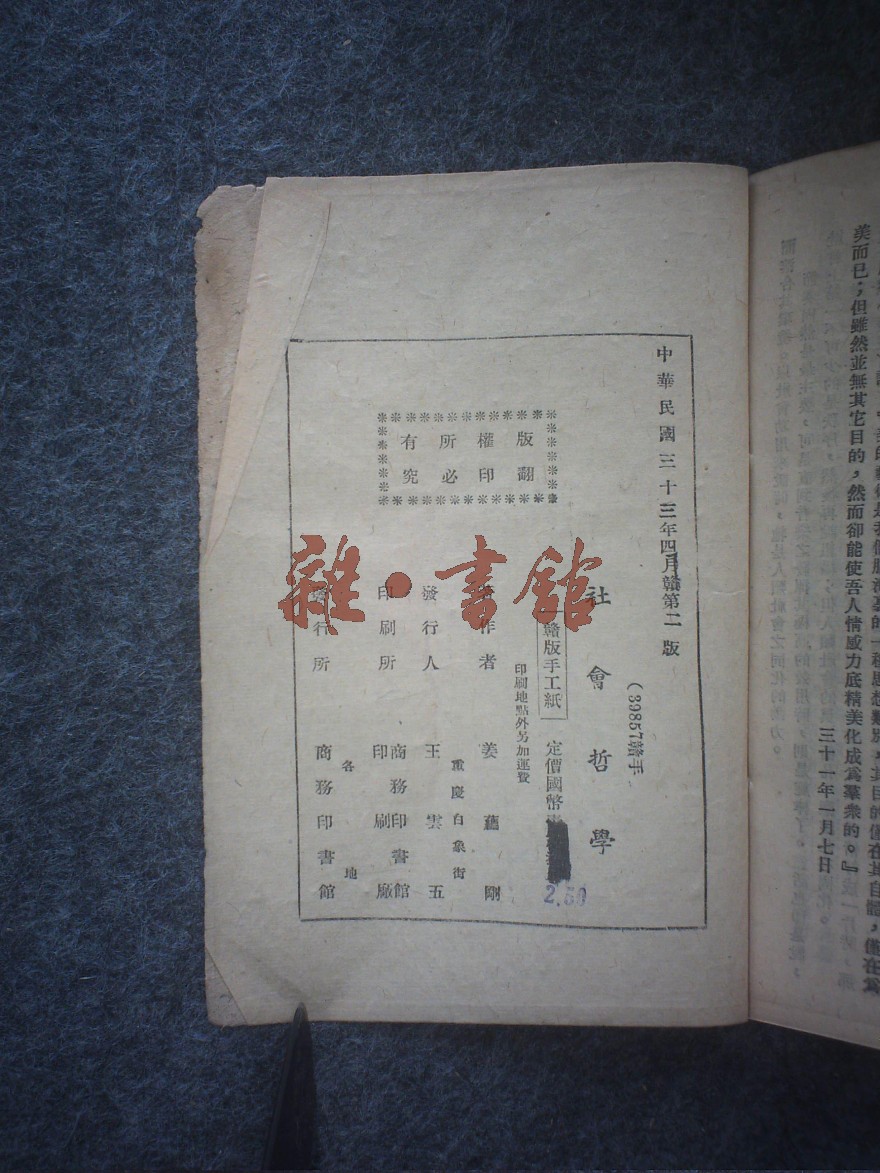 美而已;但雖然並無其它目的,然而卻能使吾人情感力底精美化成爲羣衆的。』
三十一年一月七日
中華民國三十三年四月贛第二版
(39857贛手
社會哲學
版權所有
翻印必究
贛版手工紙
定價國幣
2.50
印刷地點外另加運費
作者 姜 剛
重慶白象街
發行人 王雲五
印刷所 商務印書館印刷廠
各地
發行所 商務印書館
雜·書館